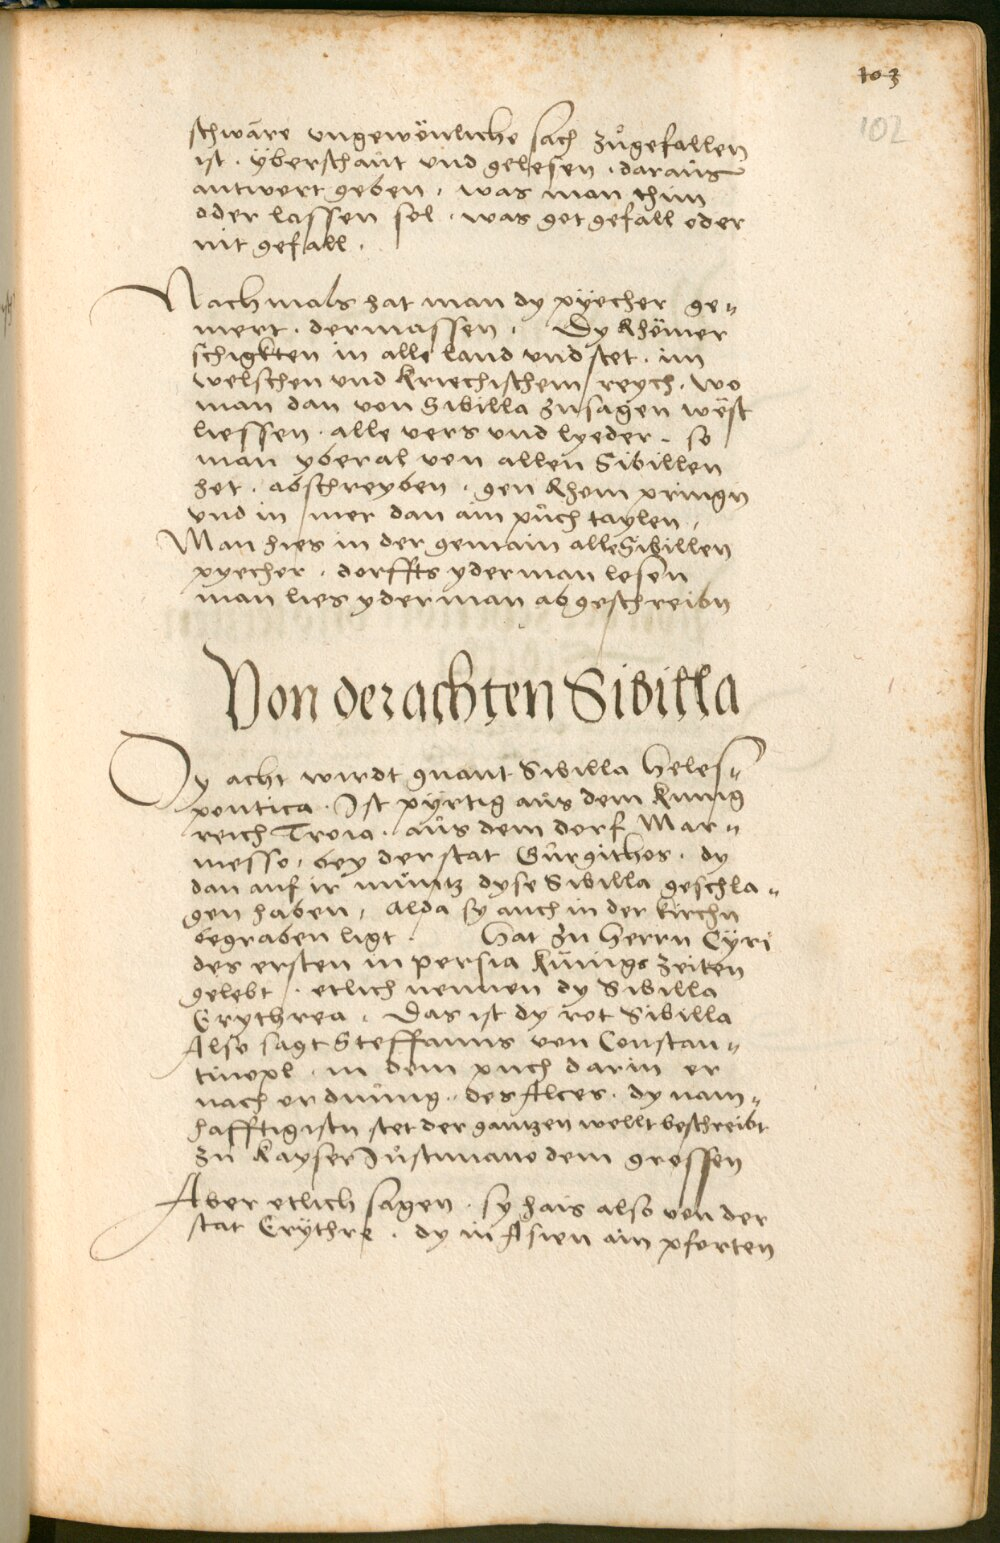 103
102
schwäre ungewönliche sach zůgefallen
ist · ÿberschaůt vnd gelesen · daraůs
antwort geben · was man thun
oder lassen sol · was got gefall oder
nit gefall ·
Nachmals hat man dy pÿecher ge„
mert · dermassen · Dy Rhömer
schigkten in alle land vnd stet · im
welschen vnd kriechischem reych · wo
man dan von Sibilla zusagen wëst
liessen · alle vers vnd lyeder · so
man yberal von allen Sibillen
het · abschreyben · gen Rhom pringn
vnd in mer dan ain půch taylen ·
Man hies in der gemain alle Sibillen
pyecher · dorffts yderman lesen
man lies yderman abgeschreibn
Von der achten Sibilla
Dy acht wirdt gnant Sibilla Heles„
pontica · Ist pÿrtig aůs dem kunig
reich Troia · aůs dem dorf Mar„
messo · bey der stat Gůrgithos · dy
dan auf ir můntz dyse Sibilla geschla„
gen haben · alda sy auch in der kirchn
begraben ligt · Hat zu Herrn Cÿri
des ersten in persia künigs zeiten
gelebt · etlich nennen dy Sibilla
Erythrea · Das ist dy rot Sibilla
Also sagt Steffanus von Constan„
tinopl · in dem puch darin er
nach ordnůng · des Alces · dy nam„
hafftigistn stet der gantzen wellt beschreibt
zu kayser Iůstiniano dem grossen
Aber etlich sagen · sy hais also von der
stat Erÿthre · dy in Asien ain pforten